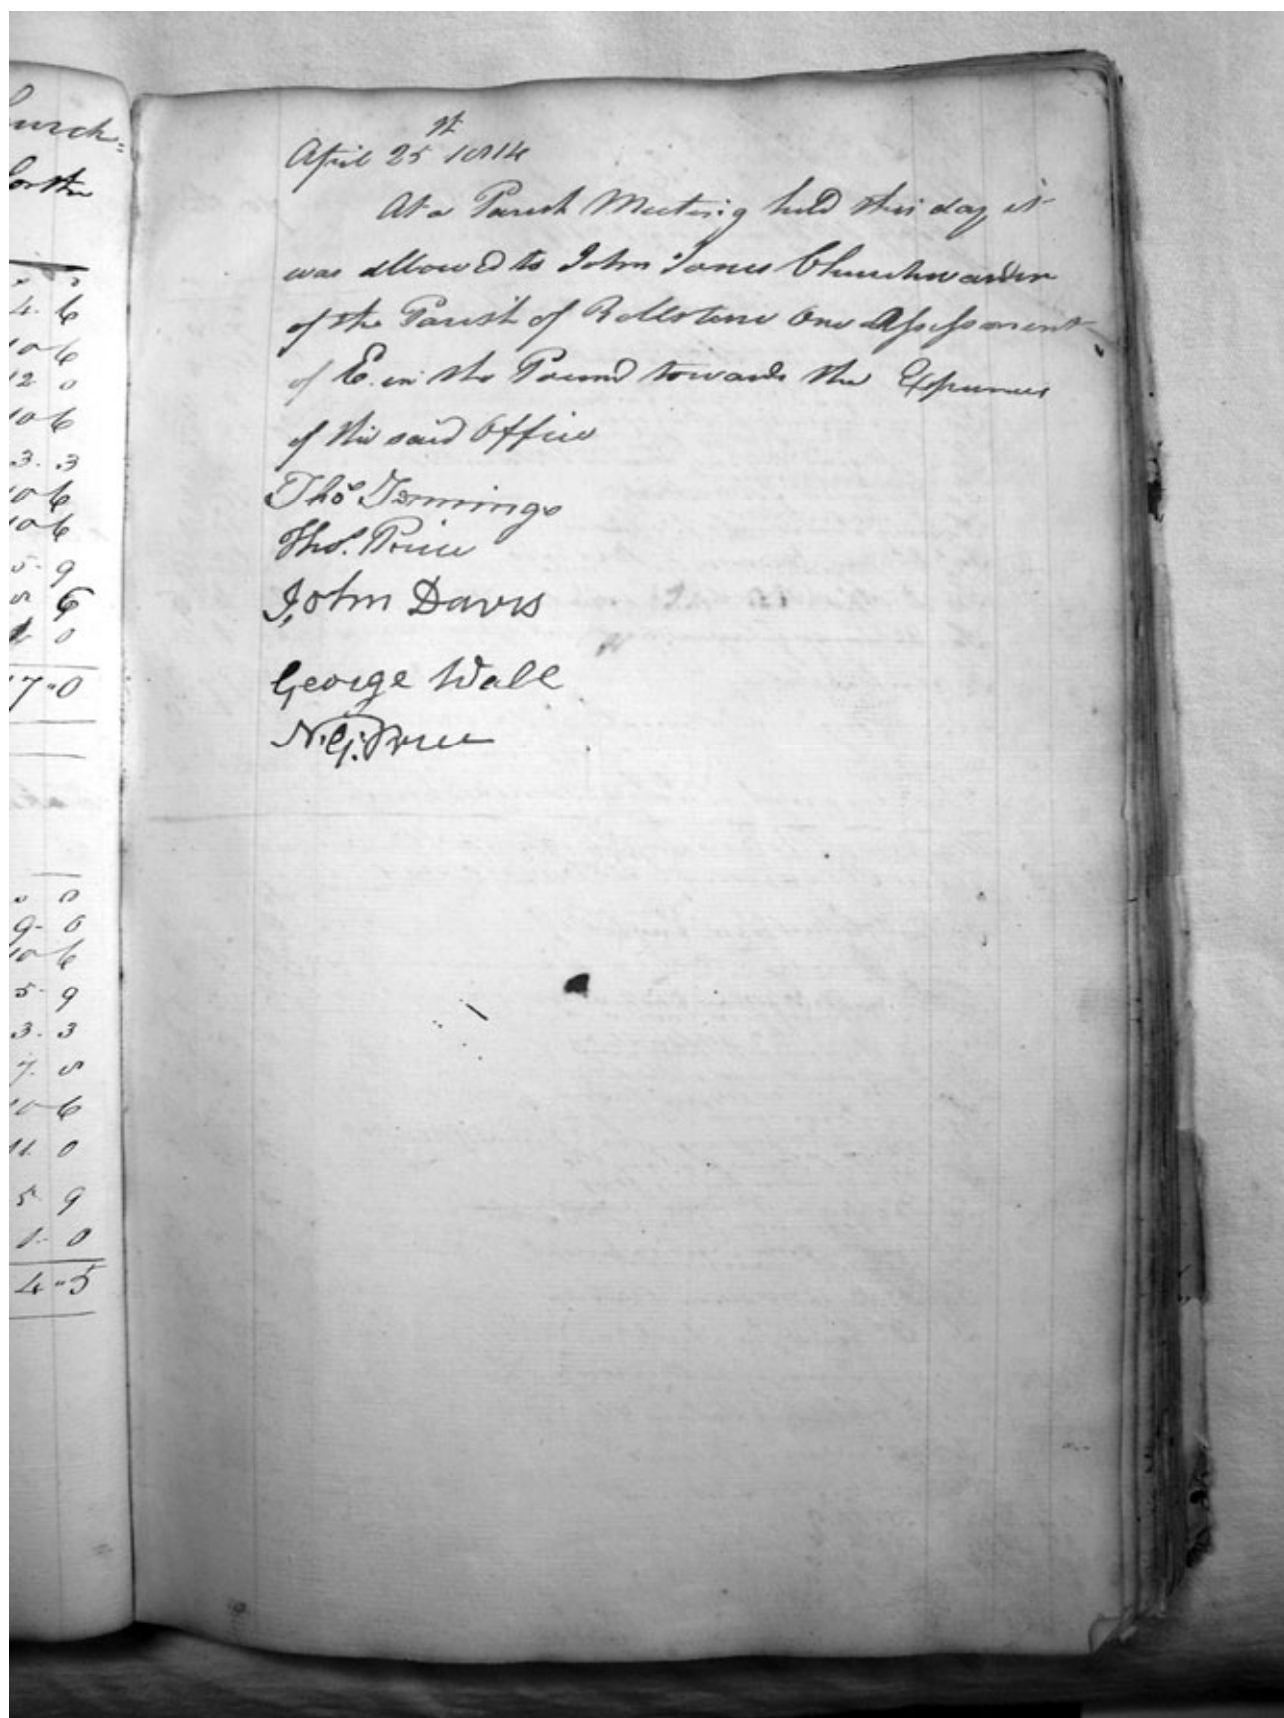 urch=
for the
4. 6
10 6
12 0
10 6
3. 3
10 6
10 6
5. 9
8 6
0
17"0
9. 0
10 6
5. 9
3. 3
7. 8
10 6
11. 0
5. 9
1. 0
4"5
April 25th 1814
At a Parish Meeting held this day it
was allowed to John Jones Churchwarden
of the Parish of Rollstone One Assessment
of in the Pound towards the Expences
of his said Office
Thos Jennings
Thos. Price
John Davis
George Wall
N. G. Price